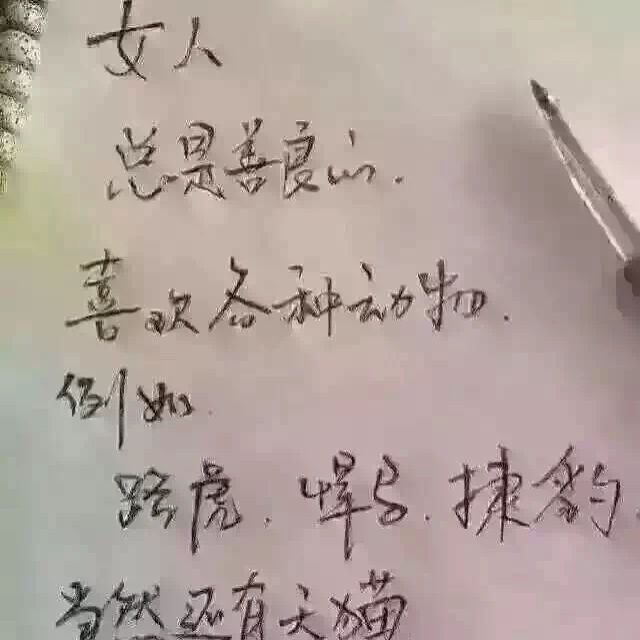 女人
总是善良的.
喜欢各种动物.
例如
路虎.悍马.捷豹.
当然还有天猫